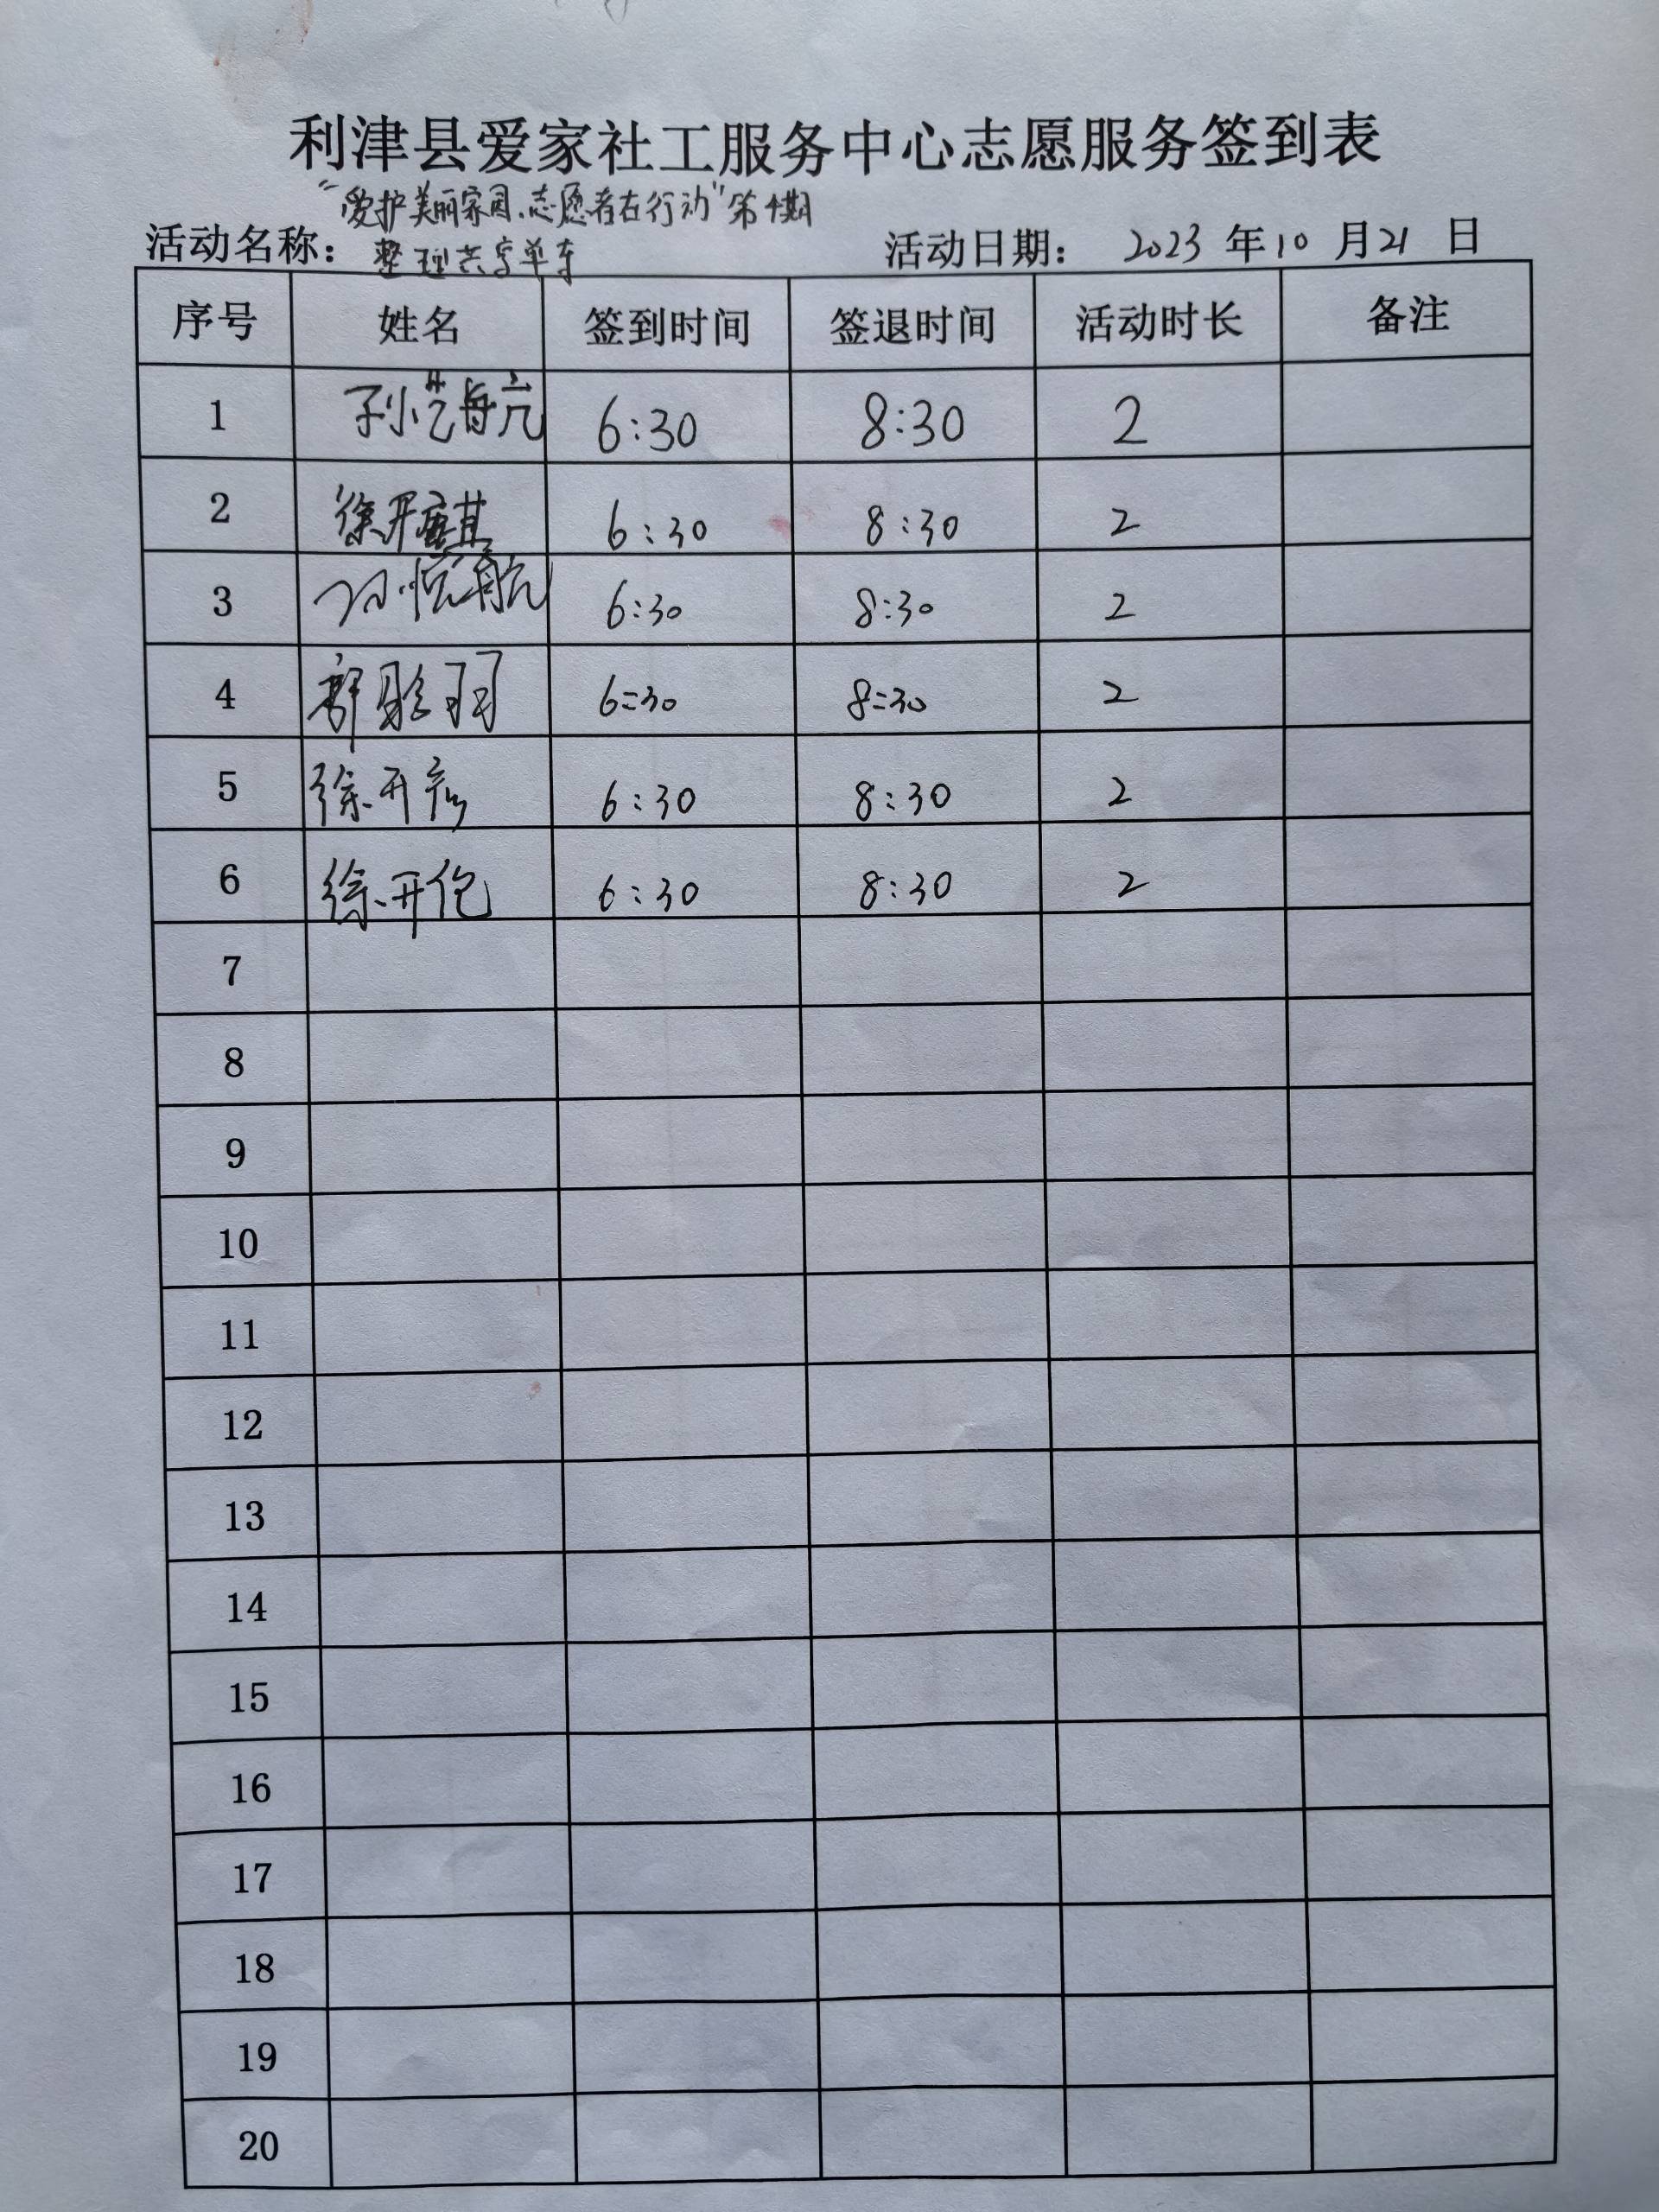 利津县爱家社工服务中心志愿服务签到表
"爱护美丽家园.志愿者在行动"第4期
活动名称: 整理共享单车 活动日期: 2023 年 10 月 21 日
序号 姓名 签到时间 签退时间 活动时长 备注
1 孙艺航 6:30 8:30 2
2 徐开麒 6:30 8:30 2
3 悦航 6:30 8:30 2
4 郭 羽 6:30 8:30 2
5 徐开 6:30 8:30 2
6 徐开 6:30 8:30 2
7
8
9
10
11
12
13
14
15
16
17
18
19
20